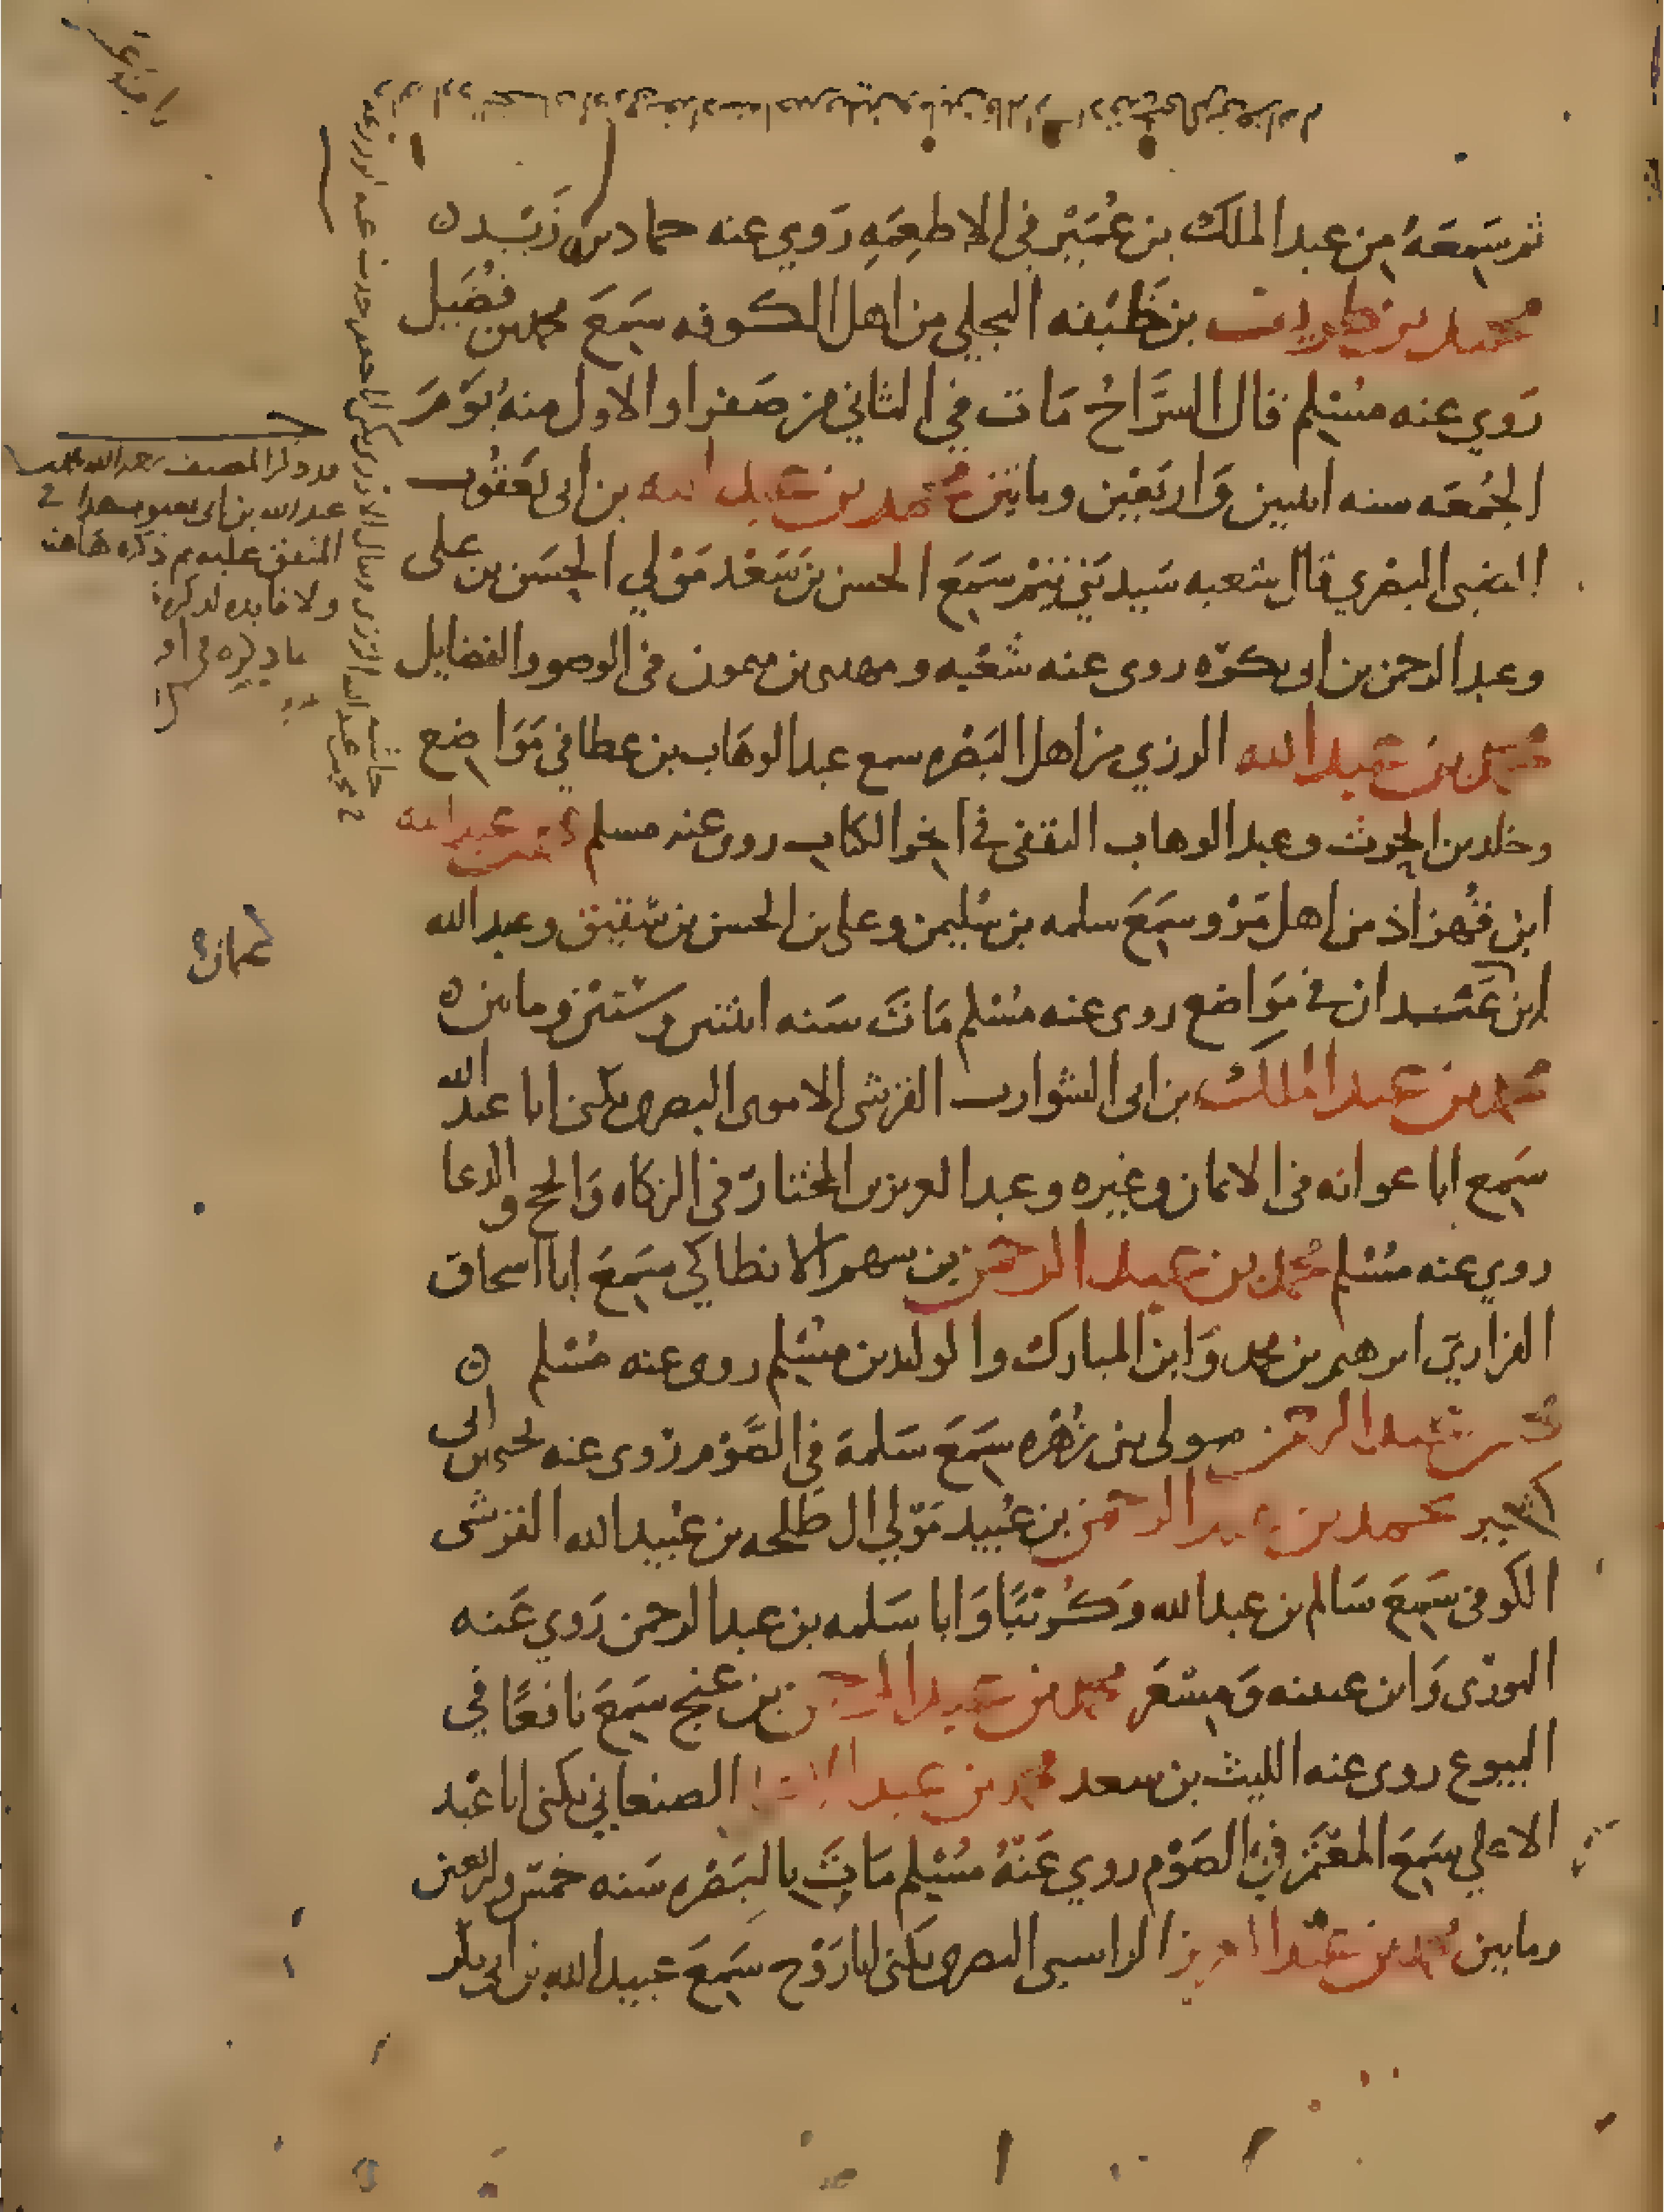 ثم سَمِعَهُ من عبد الملك بن عُمَيْر في الاطعِمَهِ رَوي عنه حماد بن زَيْد ه
محمد بن طريف بن خَليفه البجلي من اهل الكوفه سَمِعَ محمد بن فُضَيل
رَوي عنه مسْلم قال السرَّاجُ مَات في الثاني من صَفر او الاول منهُ يَوْمَ
الجُمُعَه سنه اثنين وَاربَعين وماتين محمد بن عبد الله بن ابي يَعقُوب
الضبي البصْري قال شعبه سَيد بَني تميْم سَمِعَ الحسن بن سَعْد مَوْلي الحسَن بن علي
وعبد الرحمن بن ابي بكرَه روى عنه شعْبه ومهدى بن ميمون في الوضو والفضايل
محمد بن عبد الله الرزي من اهل البَصْره سمع عبد الوهَاب بن عطا في مَوَاضع
وخلد بن الحرث وعبد الوهاب الثقفى في اخر الكتاب روى عنه مسلم محمد بن عبد الله
ابن قُهزاذ من اهل مَرْو سَمِعَ سلمه بن سُليمن وعلى بن الحسن بن شقيق وعبد الله
ابن عَثمان في مَوَاضع روى عنه مسْلم مَاتَ سَنه اثنتين وستين وماتين ه
محمد بن عبد الملك بن ابى الشوارب القرشى الاموى البصرى يكنى ابا عبد الله
سَمِع ابا عوانه في الايمان وغيره وعبد العزيز بن المختار في الزكاه وَالحج والدعا
روي عنه مسْلم محمد بن عبد الرحمن بن سهم الانطاكي سَمِعَ ابا اسحاق
الفزاريّ ابرهيم بن محمد وَابن المبارك والوليد بن مسْلم روى عنه مسْلم ه
محمد بن عبد الرحمن مولى بنى زُهْره سَمِعَ سَلمة في الصَّوْم رَوى عنه يحيى بن ابى
كثير محمد بن عبد الرحمن بن عبُيد مَوْلي ال طلحه بن عبُيد الله القرشى
الكوفى سَمِعَ سَالم بن عبد الله وَكُريْبًا وَابا سَلمه بن عبد الرحمن رَوي عَنه
الثورى وَابن عيينه وَمِسْعَر محمد بن عبد الرحمن بن غنج سَمِعَ نافعًا في
البيوع روى عنه الليث بن سعد محمد بن عبد الاعلى الصنعاني يكنى ابا عبْد
الاعلي سَمِعَ المعْتَمَر في الصَوْم روي عَنْهُ مسْلم مَاتَ بالبَصْره سَنه خمسْ واربعين
وماتين محمد بن عبد العزيز الراسبى البصرى يكنى ابا رَوْح سَمِعَ عبيد الله بن ابى بكر
قد ذكر المصنف رحمه الله محمد بن
عبد الله بن ابى يعقوب هذا في
المتفق عليه ثم ذكره هَاهنا
ولا فايده لذكره
عثمان